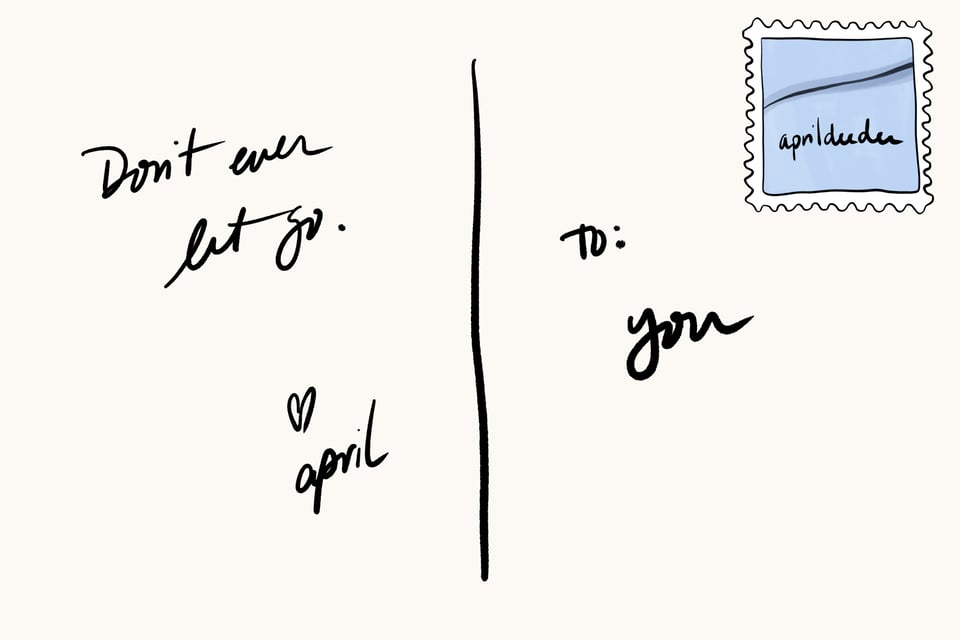 Don't ever
let go.
♡
april
aprildeeder
to:
you